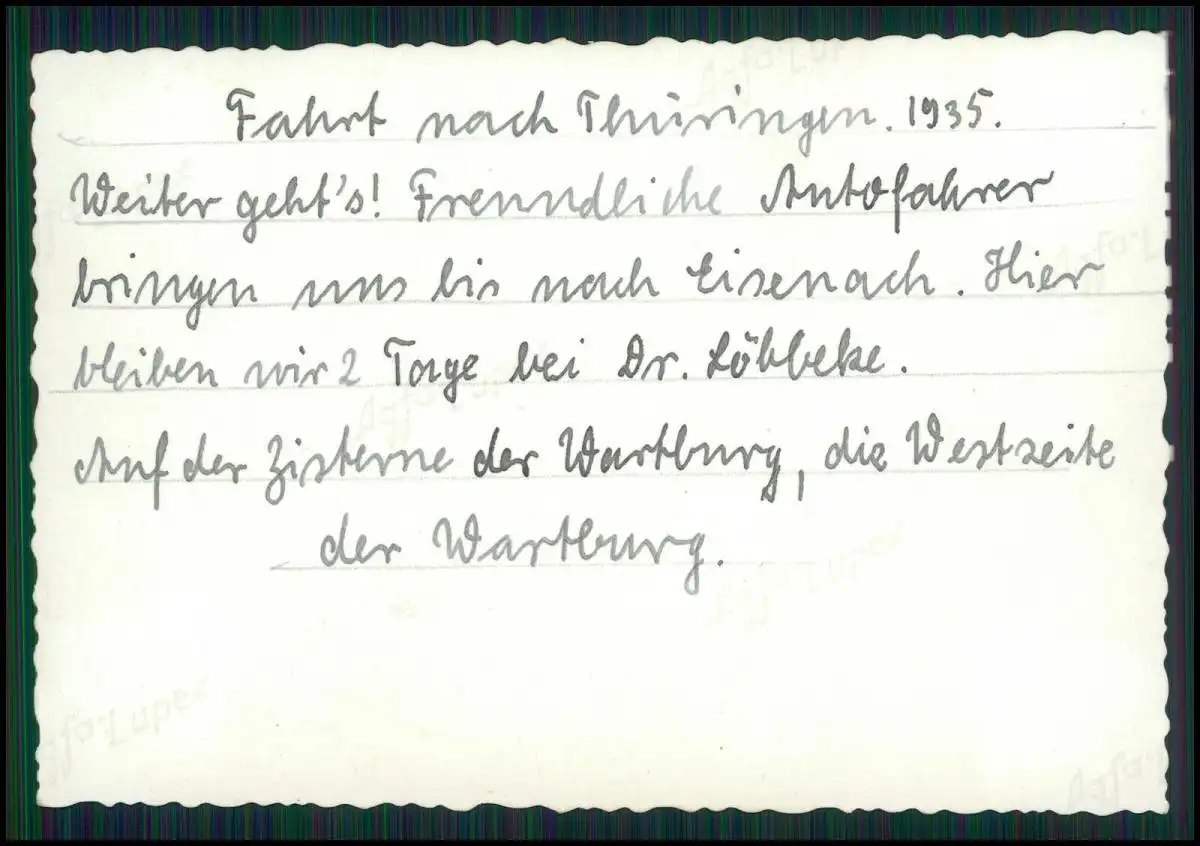 Fahrt nach Thüringen. 1935.
Weiter geht's! Freundliche Autofahrer
bringen uns bis nach Eisenach. Hier
bleiben wir 2 Tage bei Dr. Löbbeke.
Auf der Zisterne der Wartburg, die Westseite
der Wartburg.
Agfa-Lupex
Agfa-Lupex
Agfa-Lupex